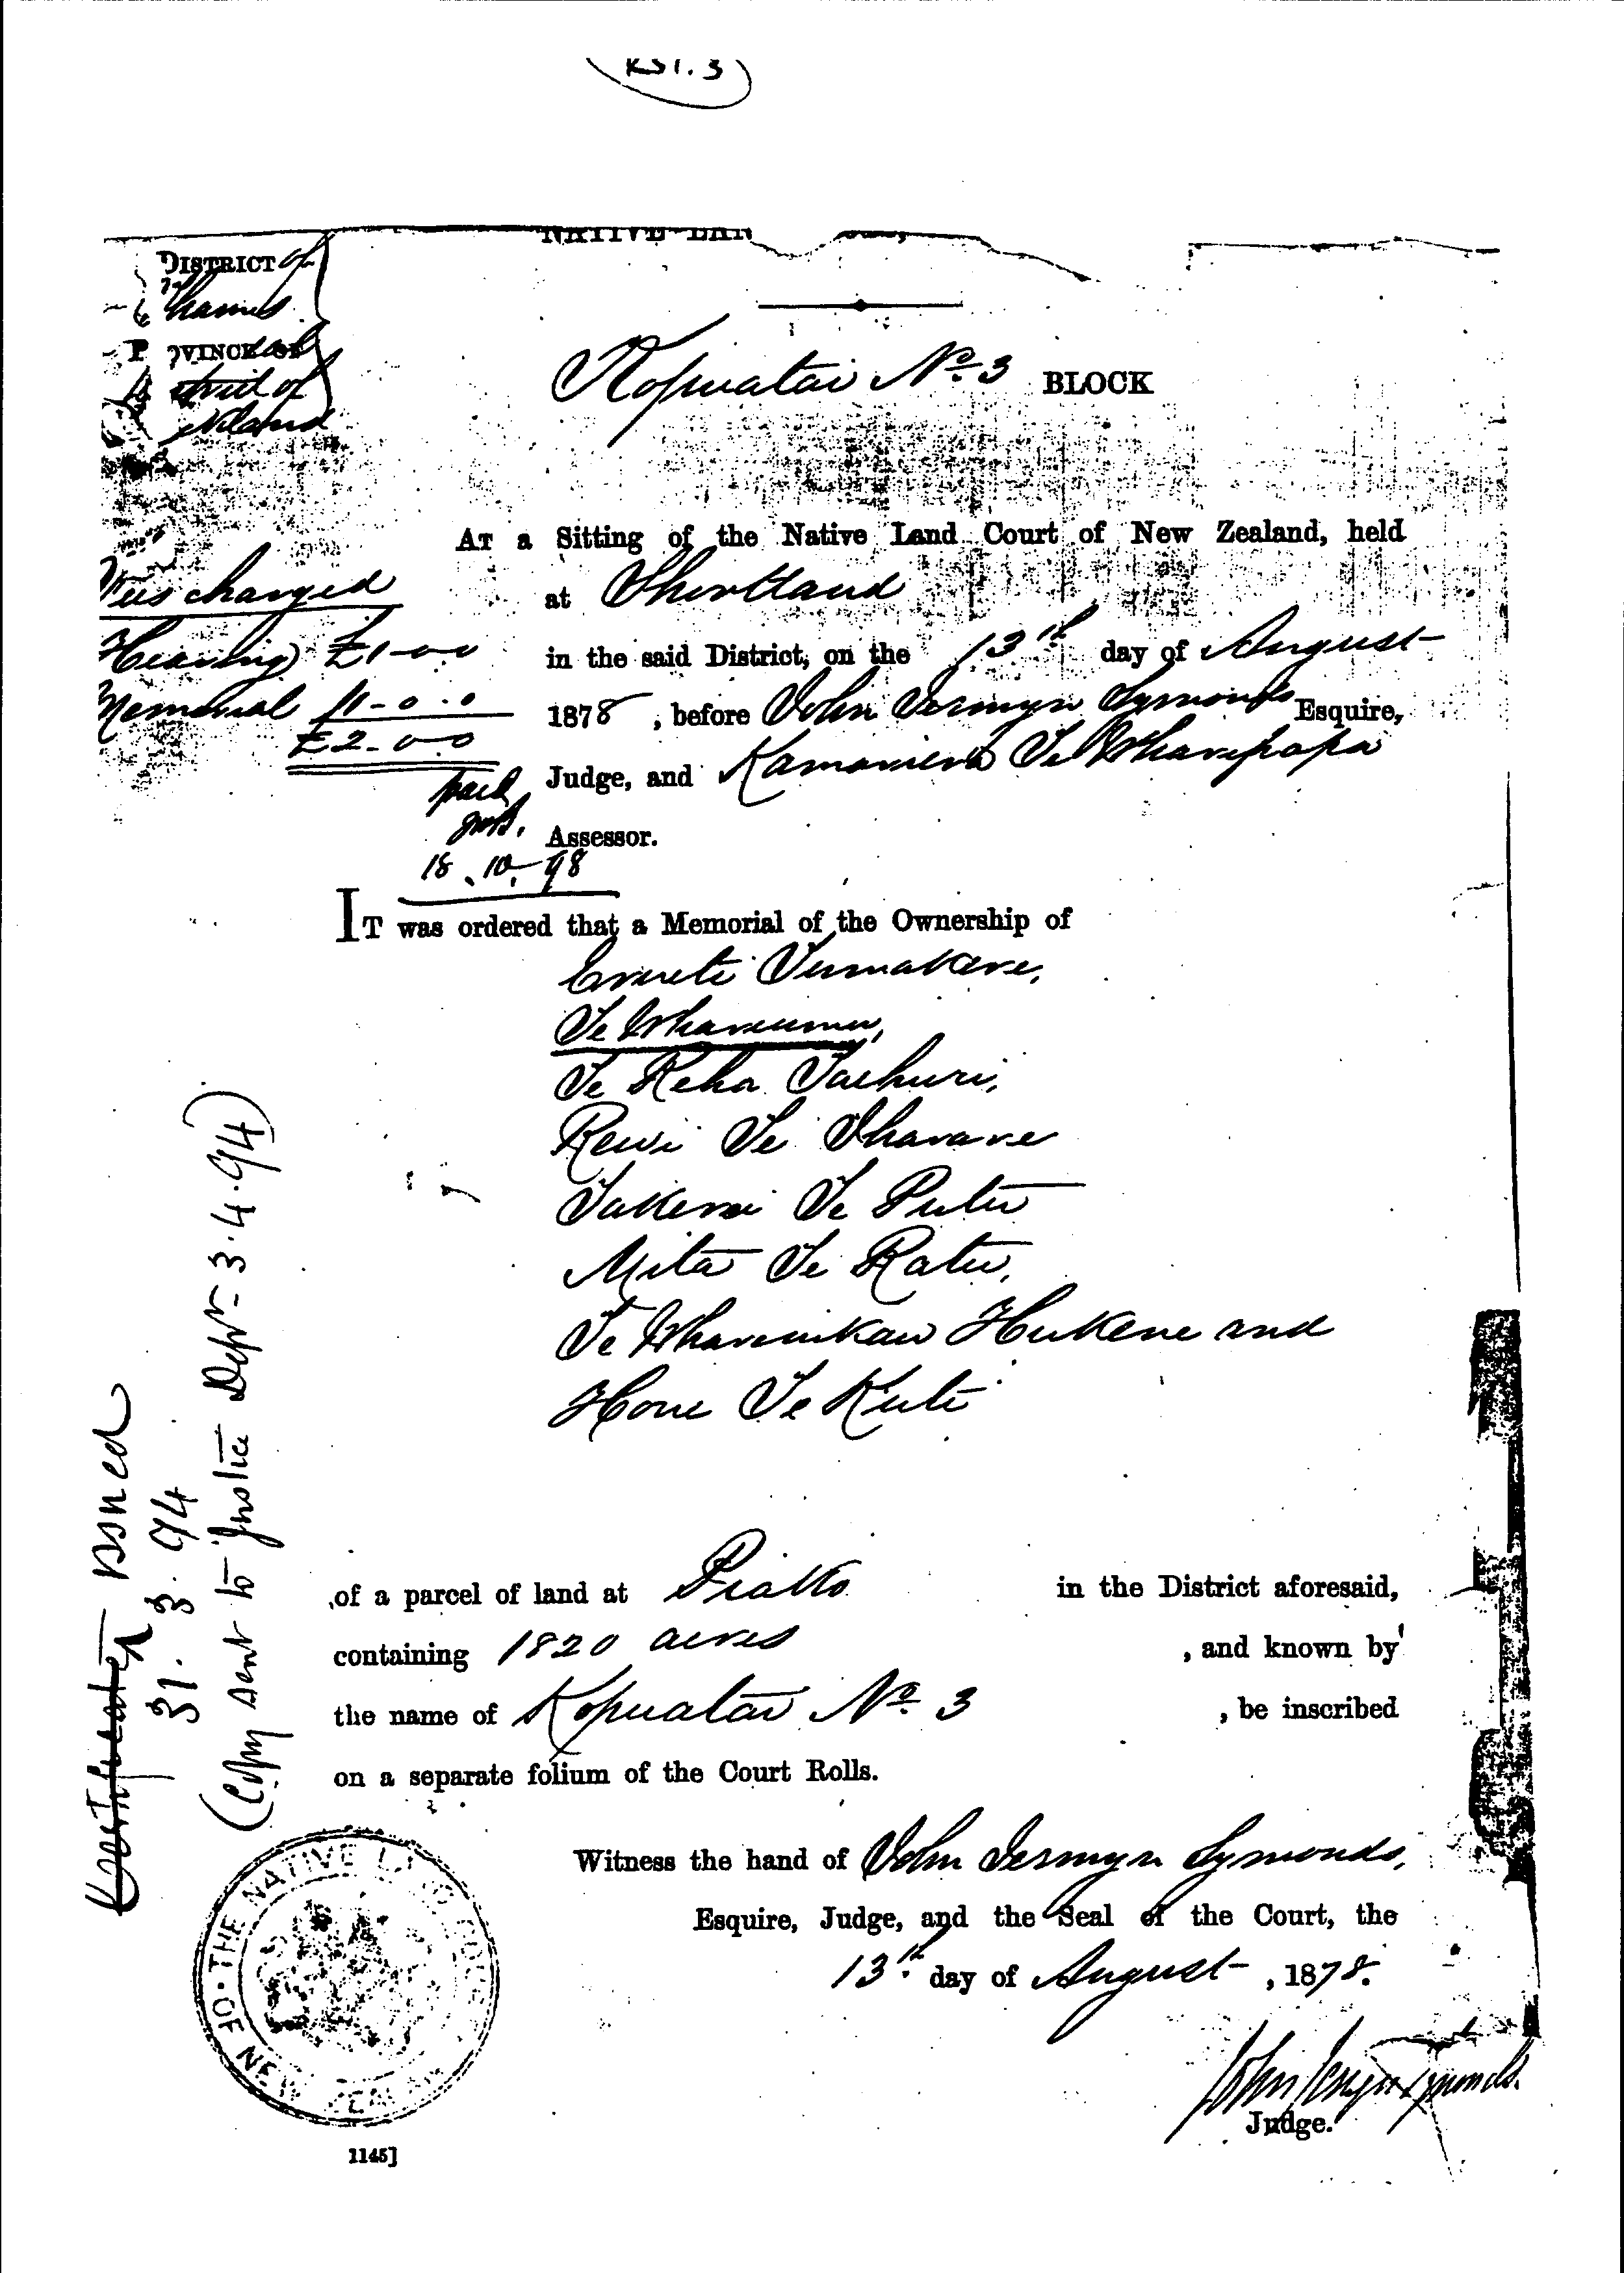 K51.3
NATIVE LAN
DISTRICT of
Thames
PROVINCE OF
District of
Kopuatai No. 3 BLOCK
AT a Sitting of the Native Land Court of New Zealand, held
at Shortland
in the said District, on the 13th day of August
1878, before John Jermyn Symonds Esquire,
Judge, and Te Wharepapa
Assessor.
Fees charged
Hearing £1-0-0
Memorial 1-0-0
£2-0-0
paid
18.10.98
IT was ordered that a Memorial of the Ownership of
Erueti Tumakere,
Te Whareumu,
Te Reha Taehuri,
Rewi Te Tharare
Te Putu
Mita Te Ratu,
Hukene and
Hone Te Ruti
of a parcel of land at Piako in the District aforesaid,
containing 1820 acres, and known by
the name of Kopuatai No. 3, be inscribed
on a separate folium of the Court Rolls.
Witness the hand of John Jermyn Symonds,
Esquire, Judge, and the Seal of the Court, the
13th. day of August, 1878.
John Jermyn Symonds.
Judge.
Certificate issued
31.3.94
(Copy sent to Justice Dept- 3.4.94)
OF THE NATIVE
OF NEW
1145]